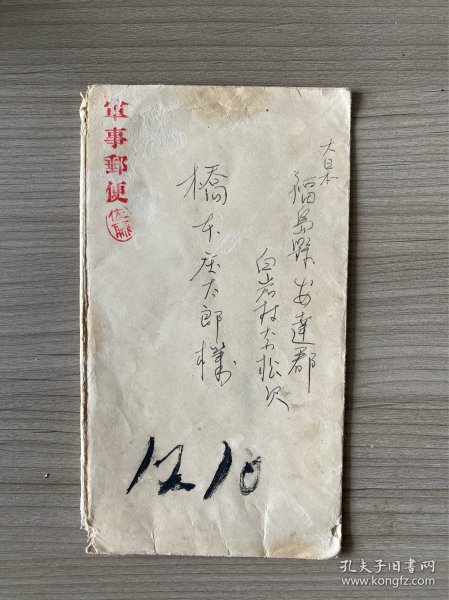 大日本
福島縣安達郡
白岩村字松沢
橋本庄太郎様
軍事郵便
12.10
孔夫子旧书网
www.kongfz.com